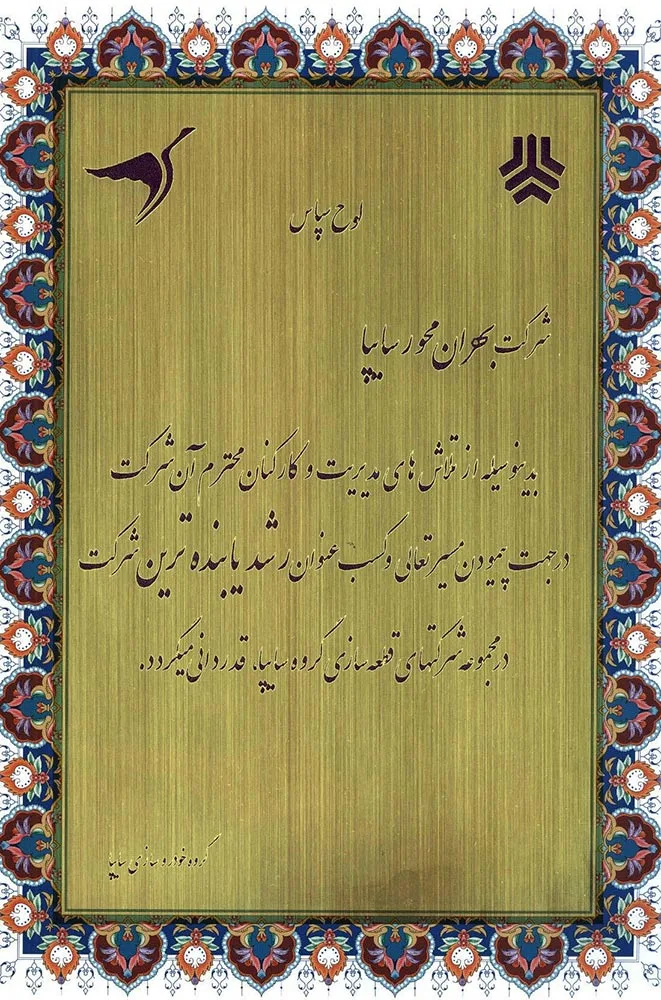 لوح سپاس
شرکت بهران محور سایپا
بدینوسیله از تلاش های مدیریت و کارکنان محترم آن شرکت
درجهت پیمودن مسیر تعالی وکسب عنوان رشد یابنده ترین شرکت
درمجموعه شرکتهای قطعه سازی گروه سایپا، قدردانی میگردد.
گروه خودروسازی سایپا